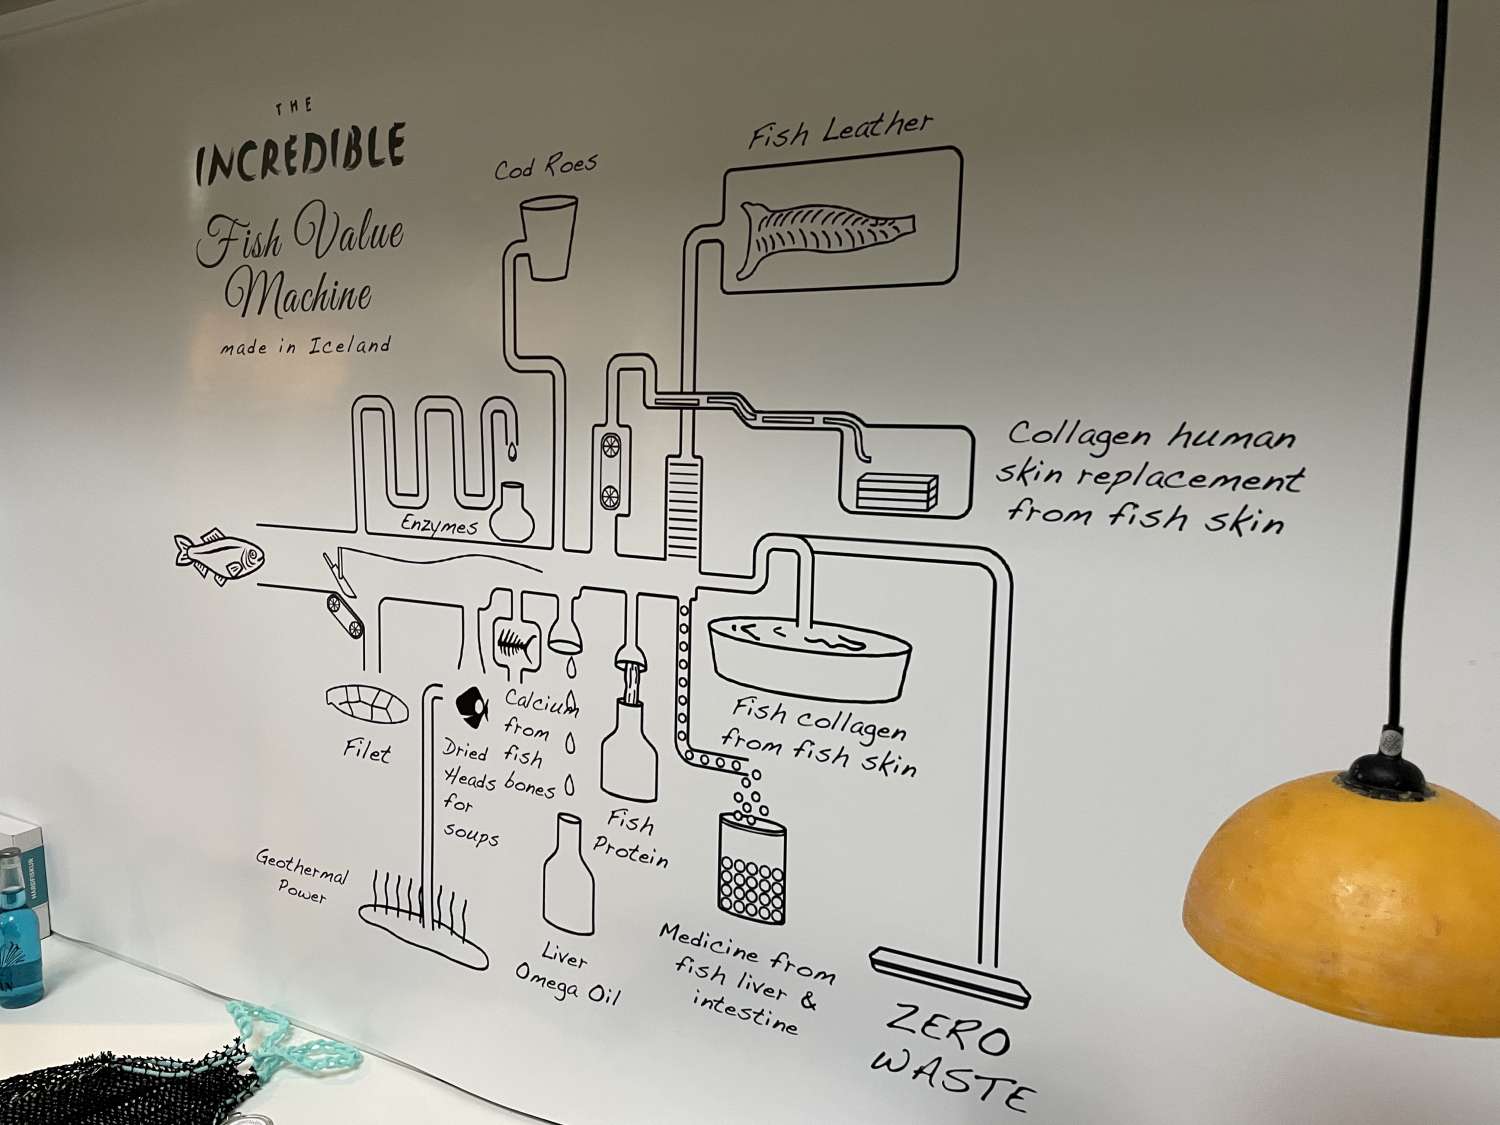 THE
INCREDIBLE
Fish Value
Machine
made in Iceland
Cod Roes
Fish Leather
Enzymes
Collagen human
skin replacement
from fish skin
Filet
Dried
Heads
for
soups
Calcium
from
fish
bones
Fish
Protein
Fish collagen
from fish skin
Geothermal
Power
Liver
Omega Oil
Medicine from
fish liver &
intestine
ZERO
WASTE
HARÐFISKUR